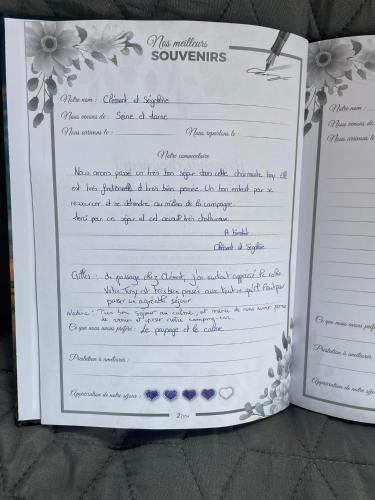 Nos meilleurs
SOUVENIRS
Notre nom : Clément et Ségolène
Nous venons de : Seine et Marne
Nous arrivons le : Nous repartons le :
Notre commentaire
Nous avons passé un très bon séjour dans cette charmante tiny elle
est très fonctionnelle et très bien pensée. Un bon endroit pour se
ressourcer et se détendre au milieu de la campagne.
Merci pour ce séjour et cet accueil très chaleureux.
A bientôt
Clément et Ségolène
Gilles : de passage chez Clément, j'ai surtout apprécié le calme
Votre Tiny est très bien pensée avec tout ce qu'il faut pour
passer un agréable séjour
: Très bon séjour au calme, et merci de nous avoir permis
de venir et poser notre camping-car.
Ce que nous avons préféré : Le paysage et le calme
Prestation à améliorer :
Appréciation de notre séjour :
2
Notre nom :
Nous venons de
Nous arrivons le
Ce que nous avons préf
Prestation à améliorer :
Appréciation de notre